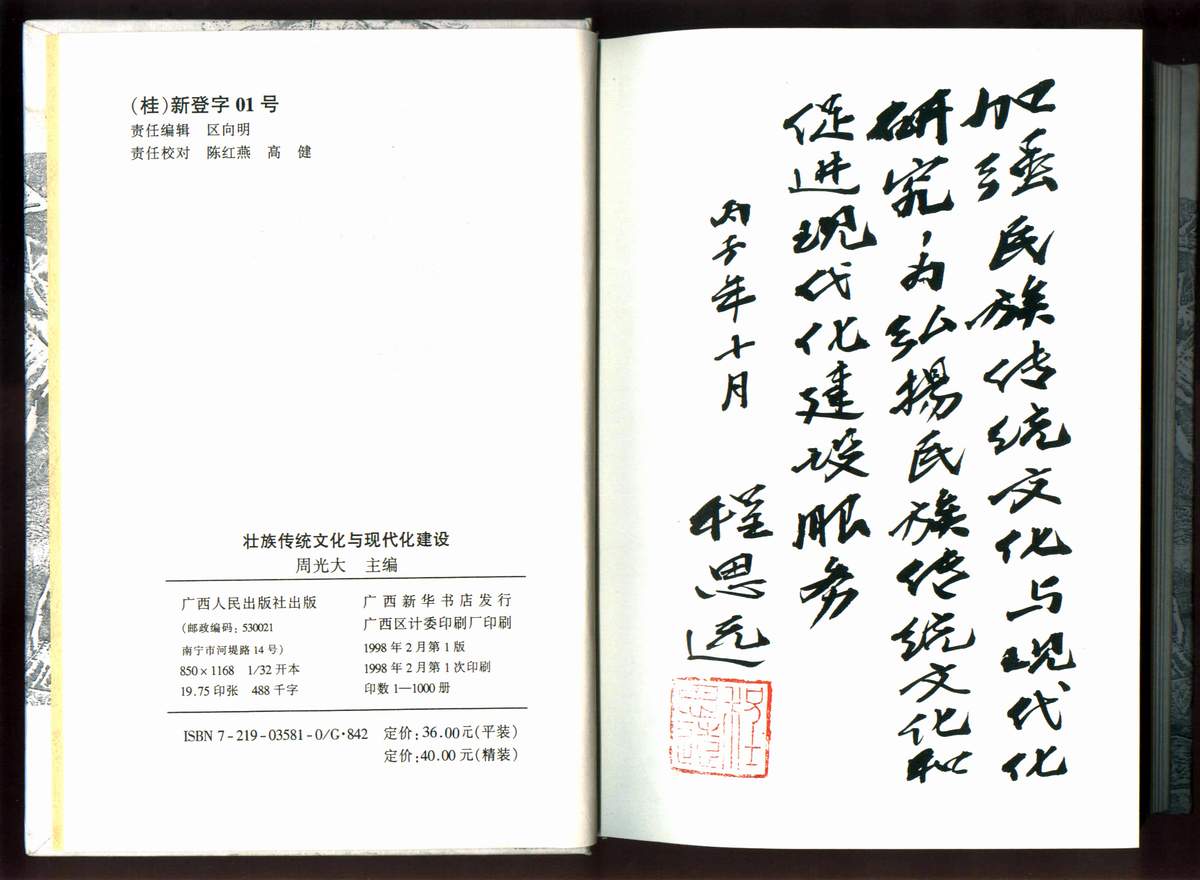 (桂)新登字 01 号
责任编辑 区向明
责任校对 陈红燕 高 健
壮族传统文化与现代化建设
周光大 主编
广西人民出版社出版
(邮政编码: 530021
南宁市河堤路 14 号)
850×1168 1/32 开本
19.75 印张 488 千字
广西新华书店发行
广西区计委印刷厂印刷
1998 年 2 月第 1 版
1998 年 2 月第 1 次印刷
印数 1—1000 册
ISBN 7-219-03581-0/G·842 定价: 36.00元(平装)
定价: 40.00 元(精装)
加强民族传统文化与现代化
研究,为弘扬民族传统文化和
促进现代化建设服务
丙子年十月
程思远